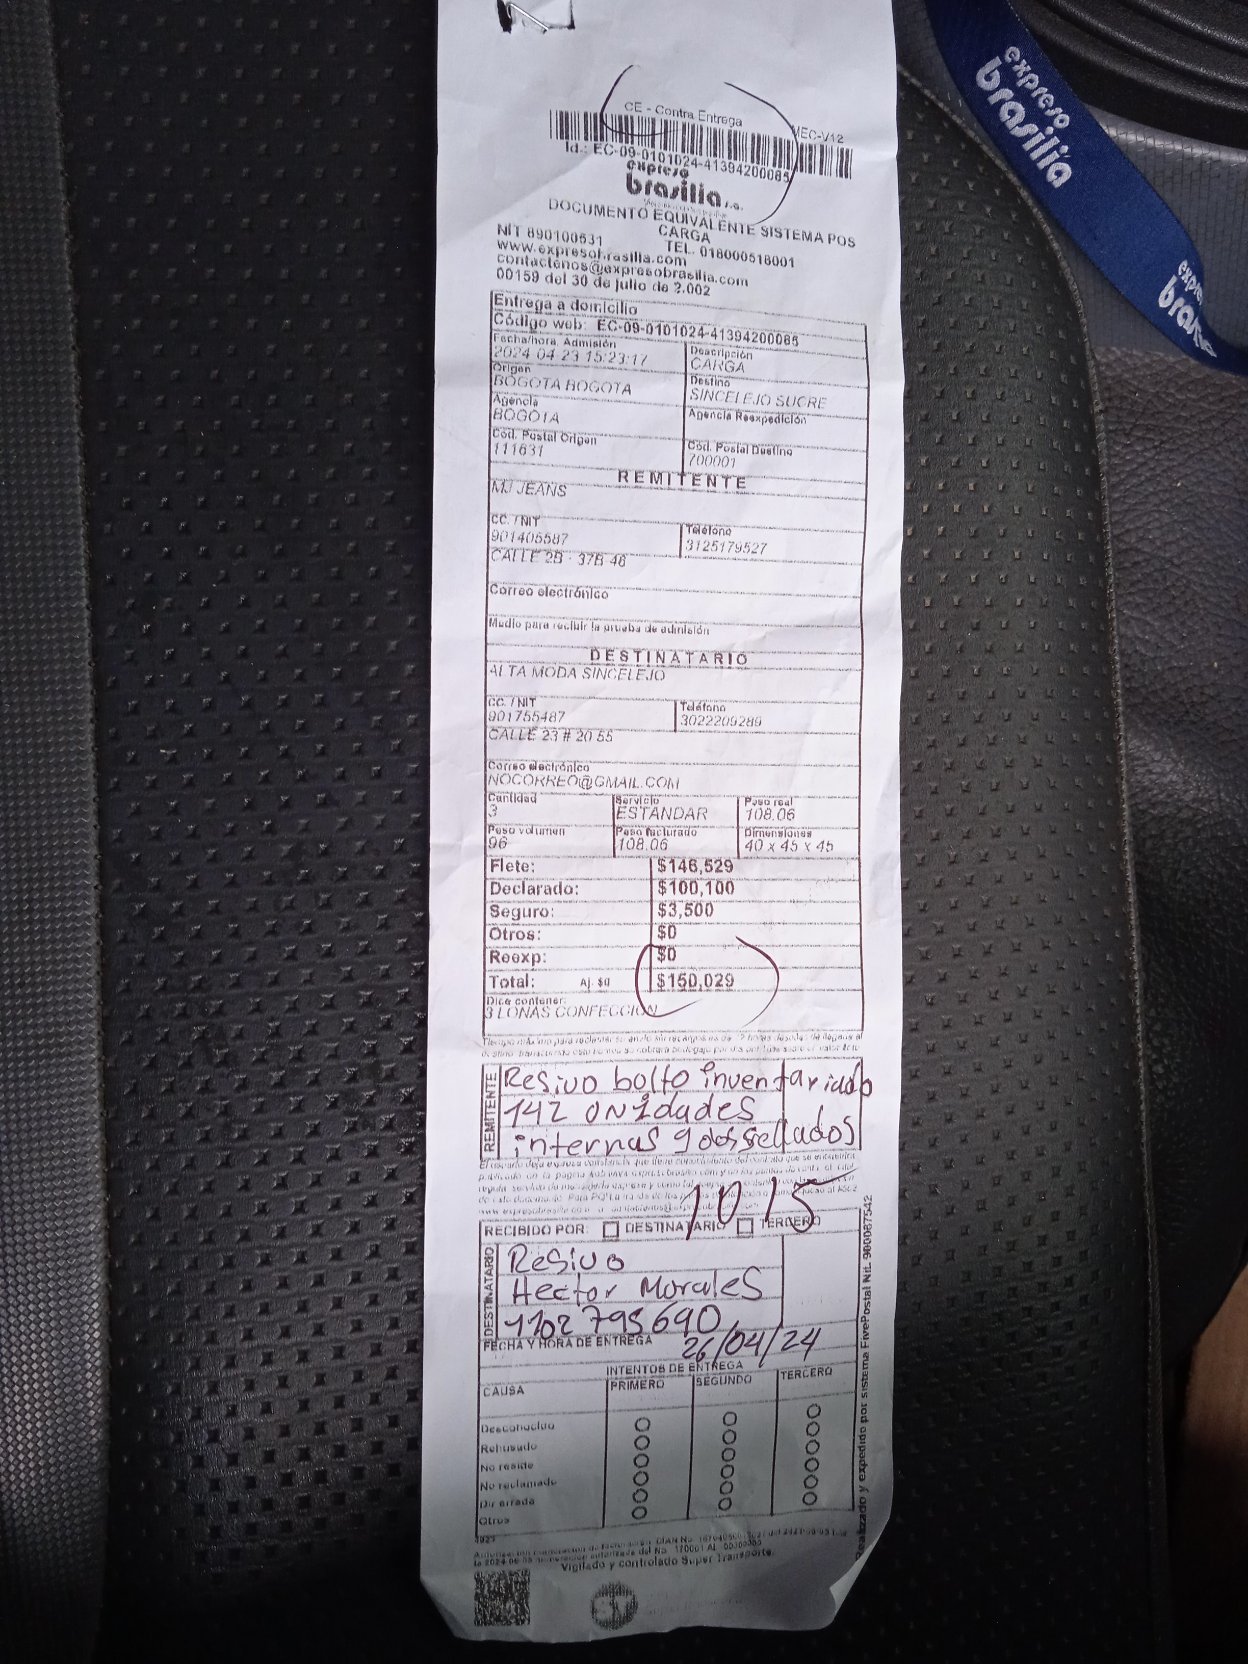 CE - Contra Entrega
MEC-V12
Id.: EC-09-0101024-41394200085
expreso
brasilia s.a.
DOCUMENTO EQUIVALENTE SISTEMA POS
CARGA
NIT 890100531 TEL. 018000518001
www.expresobrasilia.com
contactenos@expresobrasilia.com
00159 del 30 de julio de 2.002
Entrega a domicilio
Código web: EC-09-0101024-41394200085
Fecha/hora. Admisión Descripción
2024 04 23 15:23:17 CARGA
Origen Destino
BOGOTA BOGOTA SINCELEJO SUCRE
Agencia Agencia Reexpedición
BOGOTA
Cod. Postal Origen Cod. Postal Destino
111631 700001
REMITENTE
MJ JEANS
CC. / NIT Teléfono
901405587 3125179527
CALLE 2B - 37B 46
Correo electrónico
Medio para recibir la prueba de admisión
DESTINATARIO
ALTA MODA SINCELEJO
CC. / NIT Teléfono
901755487 3022209289
CALLE 23 # 20 55
Correo electrónico
NOCORREO@GMAIL.COM
Cantidad Servicio Peso real
3 ESTANDAR 108.06
Peso volumen Peso facturado Dimensiones
96 108.06 40 x 45 x 45
Flete: $146,529
Declarado: $100,100
Seguro: $3,500
Otros: $0
Reexp: $0
Total: Aj. $0 $150,029
Dice contener:
3 LONAS CONFECCION
REMITENTE
Resivo bolto inventariado
142 unidades
internas y dos sellados
10 15
RECIBIDO POR: DESTINATARIO TERCERO
DESTINATARIO
Resivo
Hector Morales
1102 795 690
FECHA Y HORA DE ENTREGA 26/04/24
INTENTOS DE ENTREGA
CAUSA PRIMERO SEGUNDO TERCERO
Desconocido
Rehusado
No reside
No reclamado
Dir errada
Otros
Vigilado y controlado Super Transporte.
Realizado y expedido por sistema FivePostal Nit. 900087542
expreso
brasilia